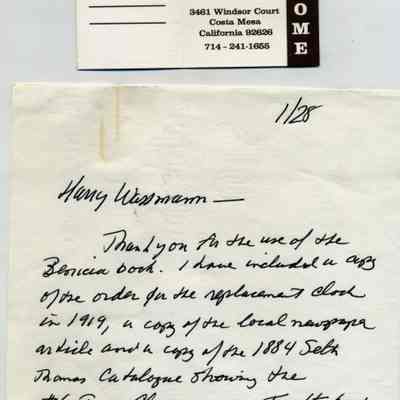 3461 Windsor Court
Costa Mesa
California 92626
714-241-1655
OME
1/28
Harry Wassmann —
Thank you for the use of the
Benicia book. I have included a copy
of the order for the replacement clock
in 1919, a copy of the local newspaper
article and a copy of the 1884 Seth
Thomas Catalogue showing the